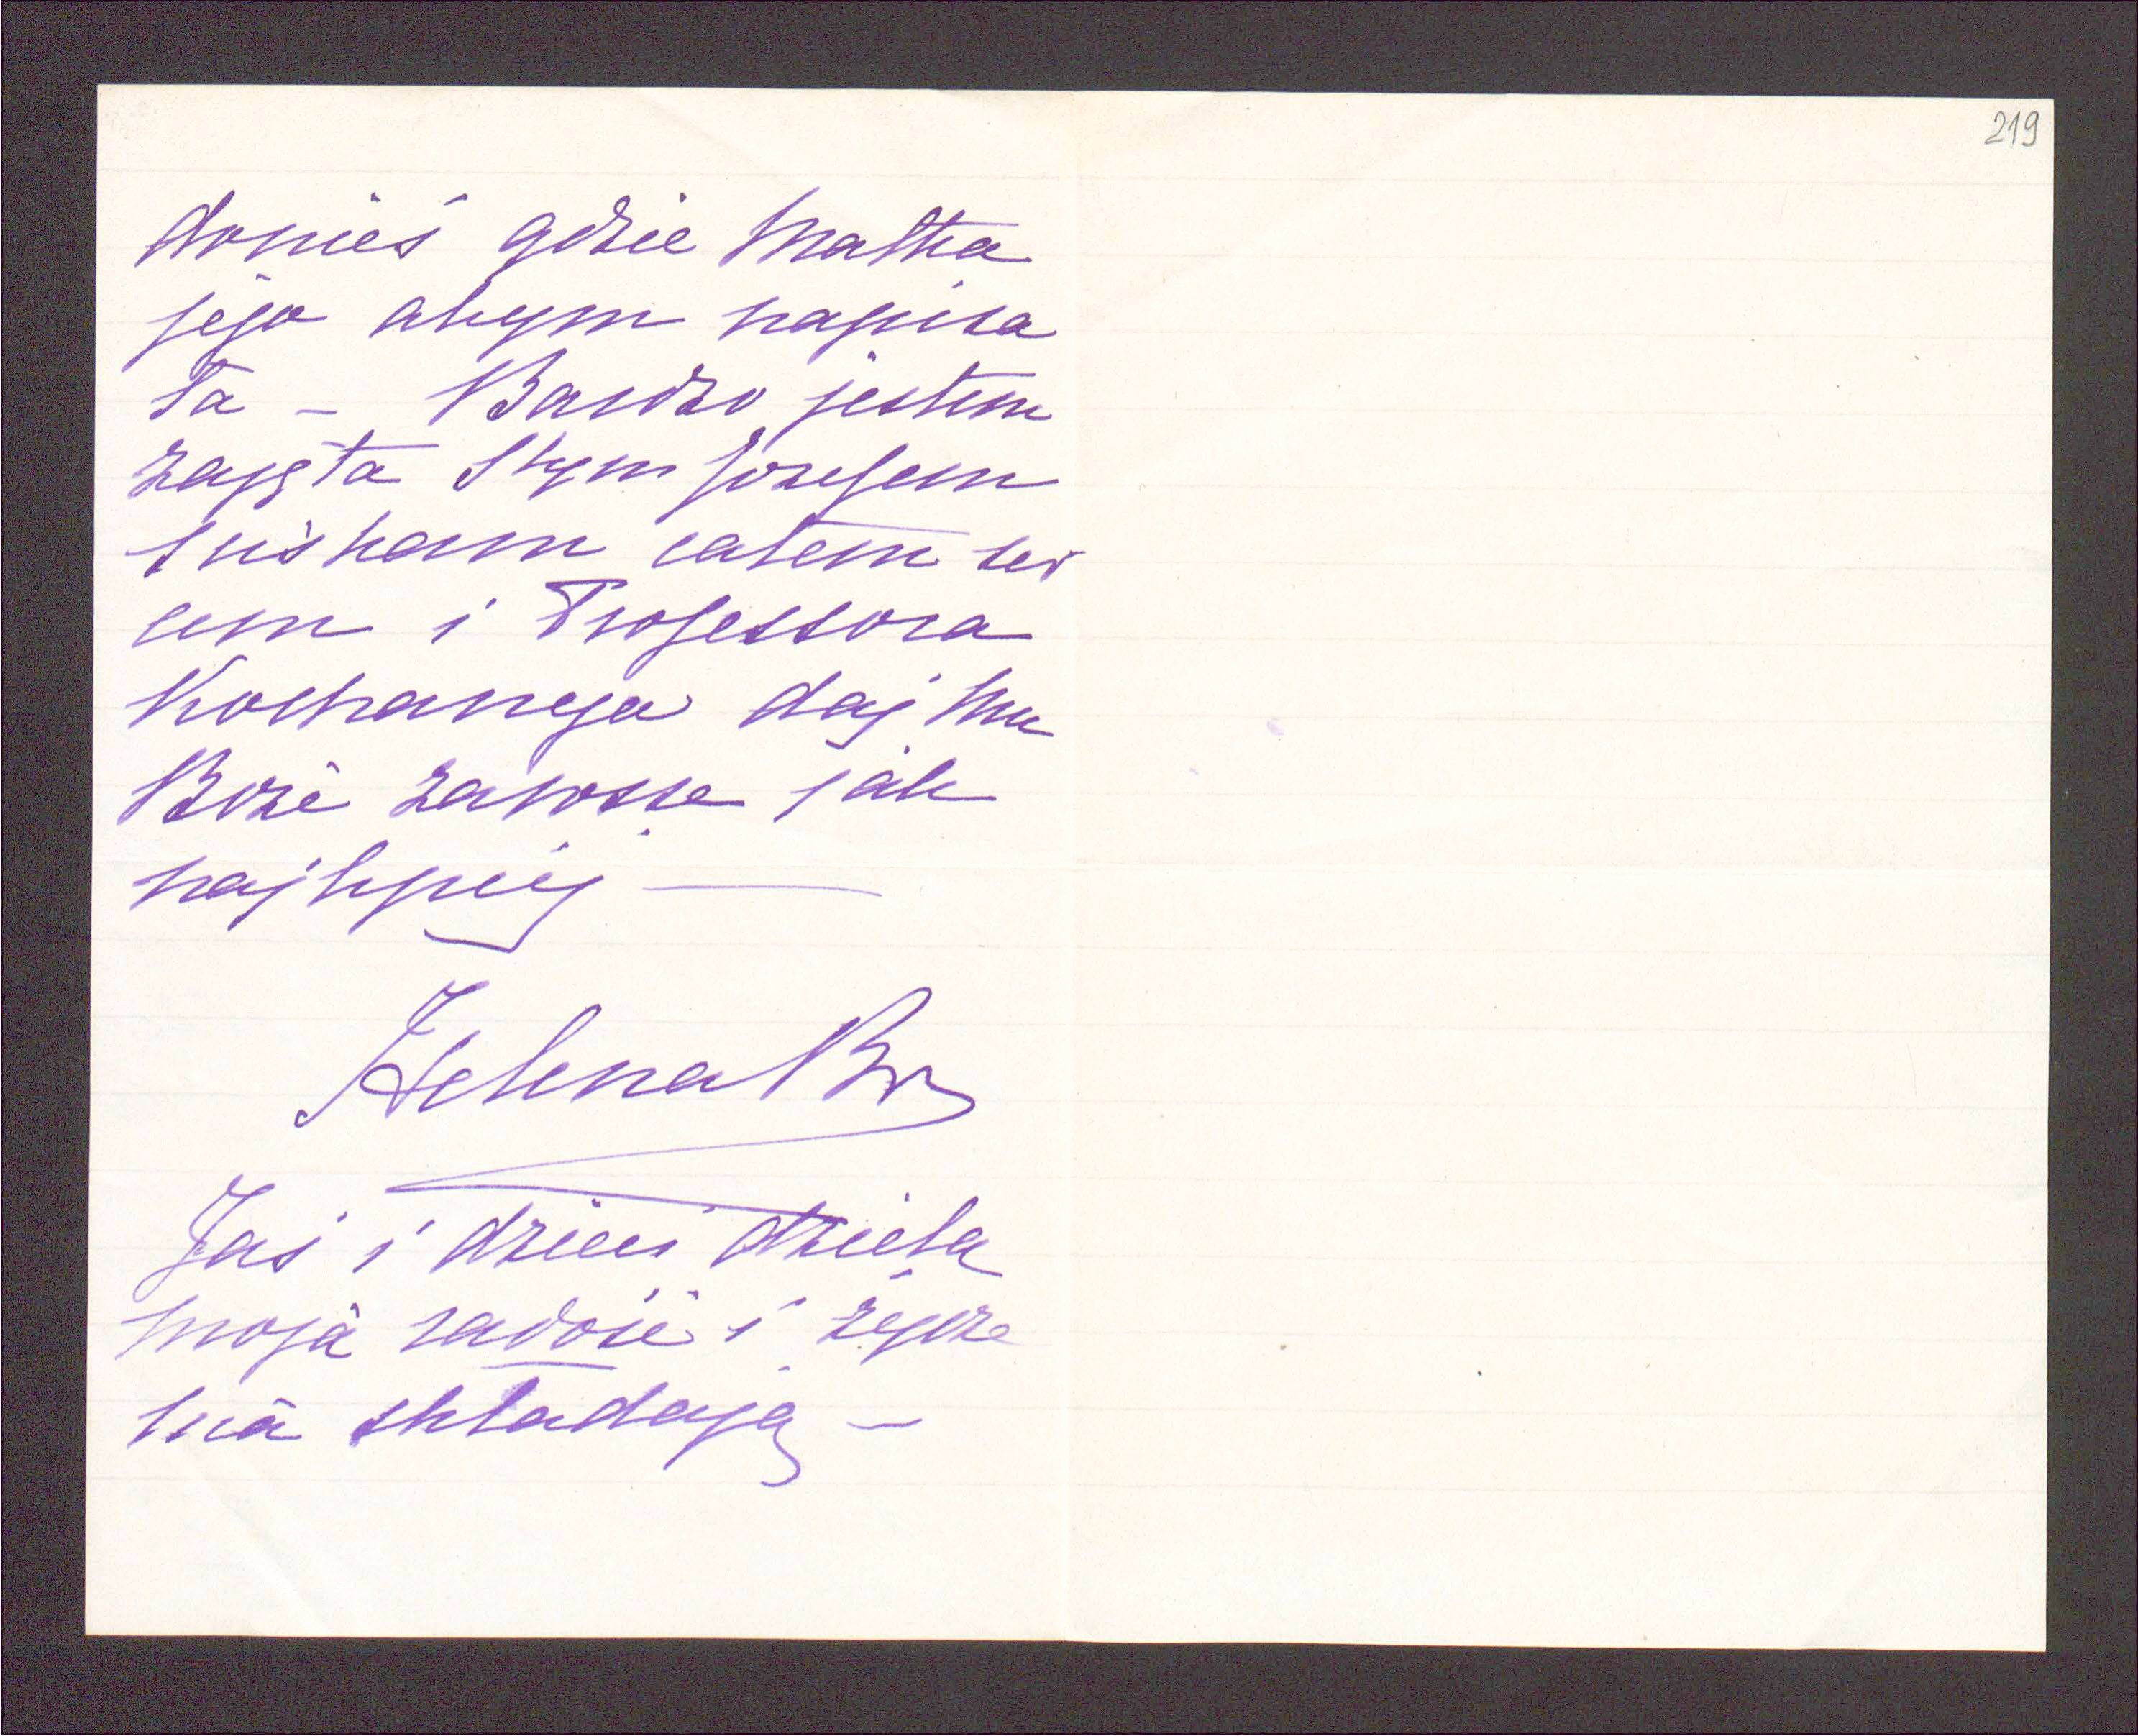 219
donieś gdzie Matka
jego abym napisa
ła – Bardzo jestem
zajęta Stym Jozefem
sciskam całem ser
cem i Professora
Kochanego daj Mu
Boże zawsze jak
najlepiej —
Helena Br
Jaś i dzieci dzielą
moją radość i życze
nia składają –